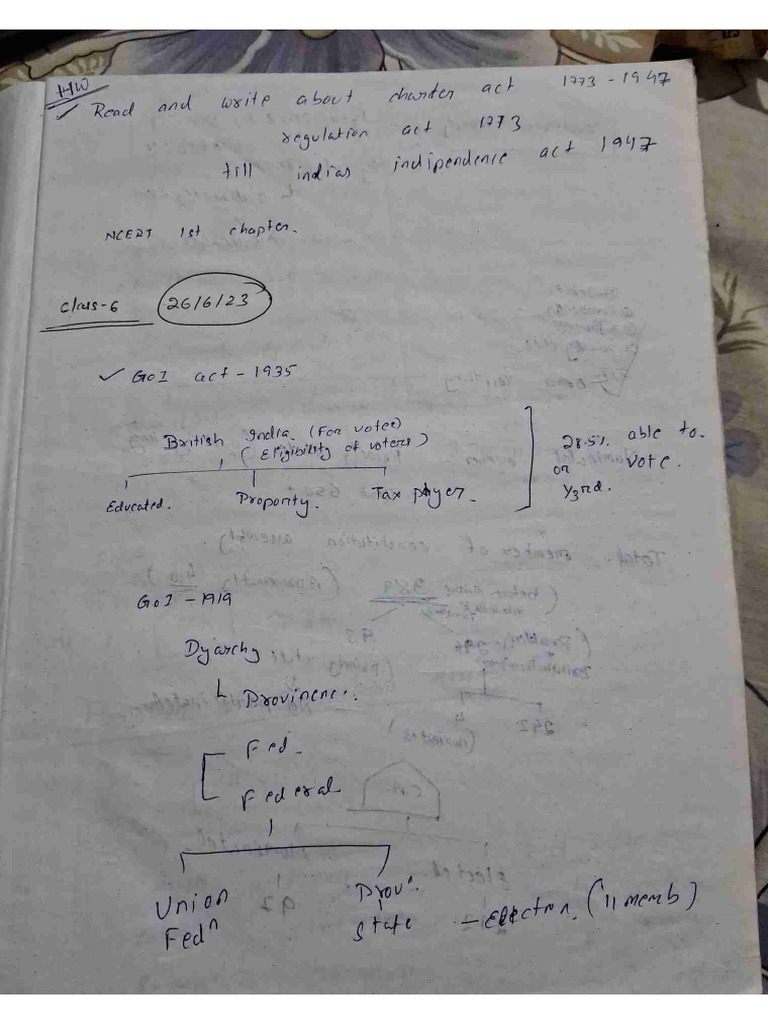 HW
✓ Read and write about charter act 1773 - 1947
regulation act 1773
till indias indipendence act 1947
NCERT 1st chapter.
Class-6 26/6/23
✓ GoI act - 1935
British India. (For votee)
(Eligibility of voters)
Educated. Proponty. Tax player.
28.5% able to
or vote.
1/3rd.
GoI - 1919
Dyarchy.
Provinenc.
Fed.
Federal
Union Provn.
Fedn State - Election. (11 memb)